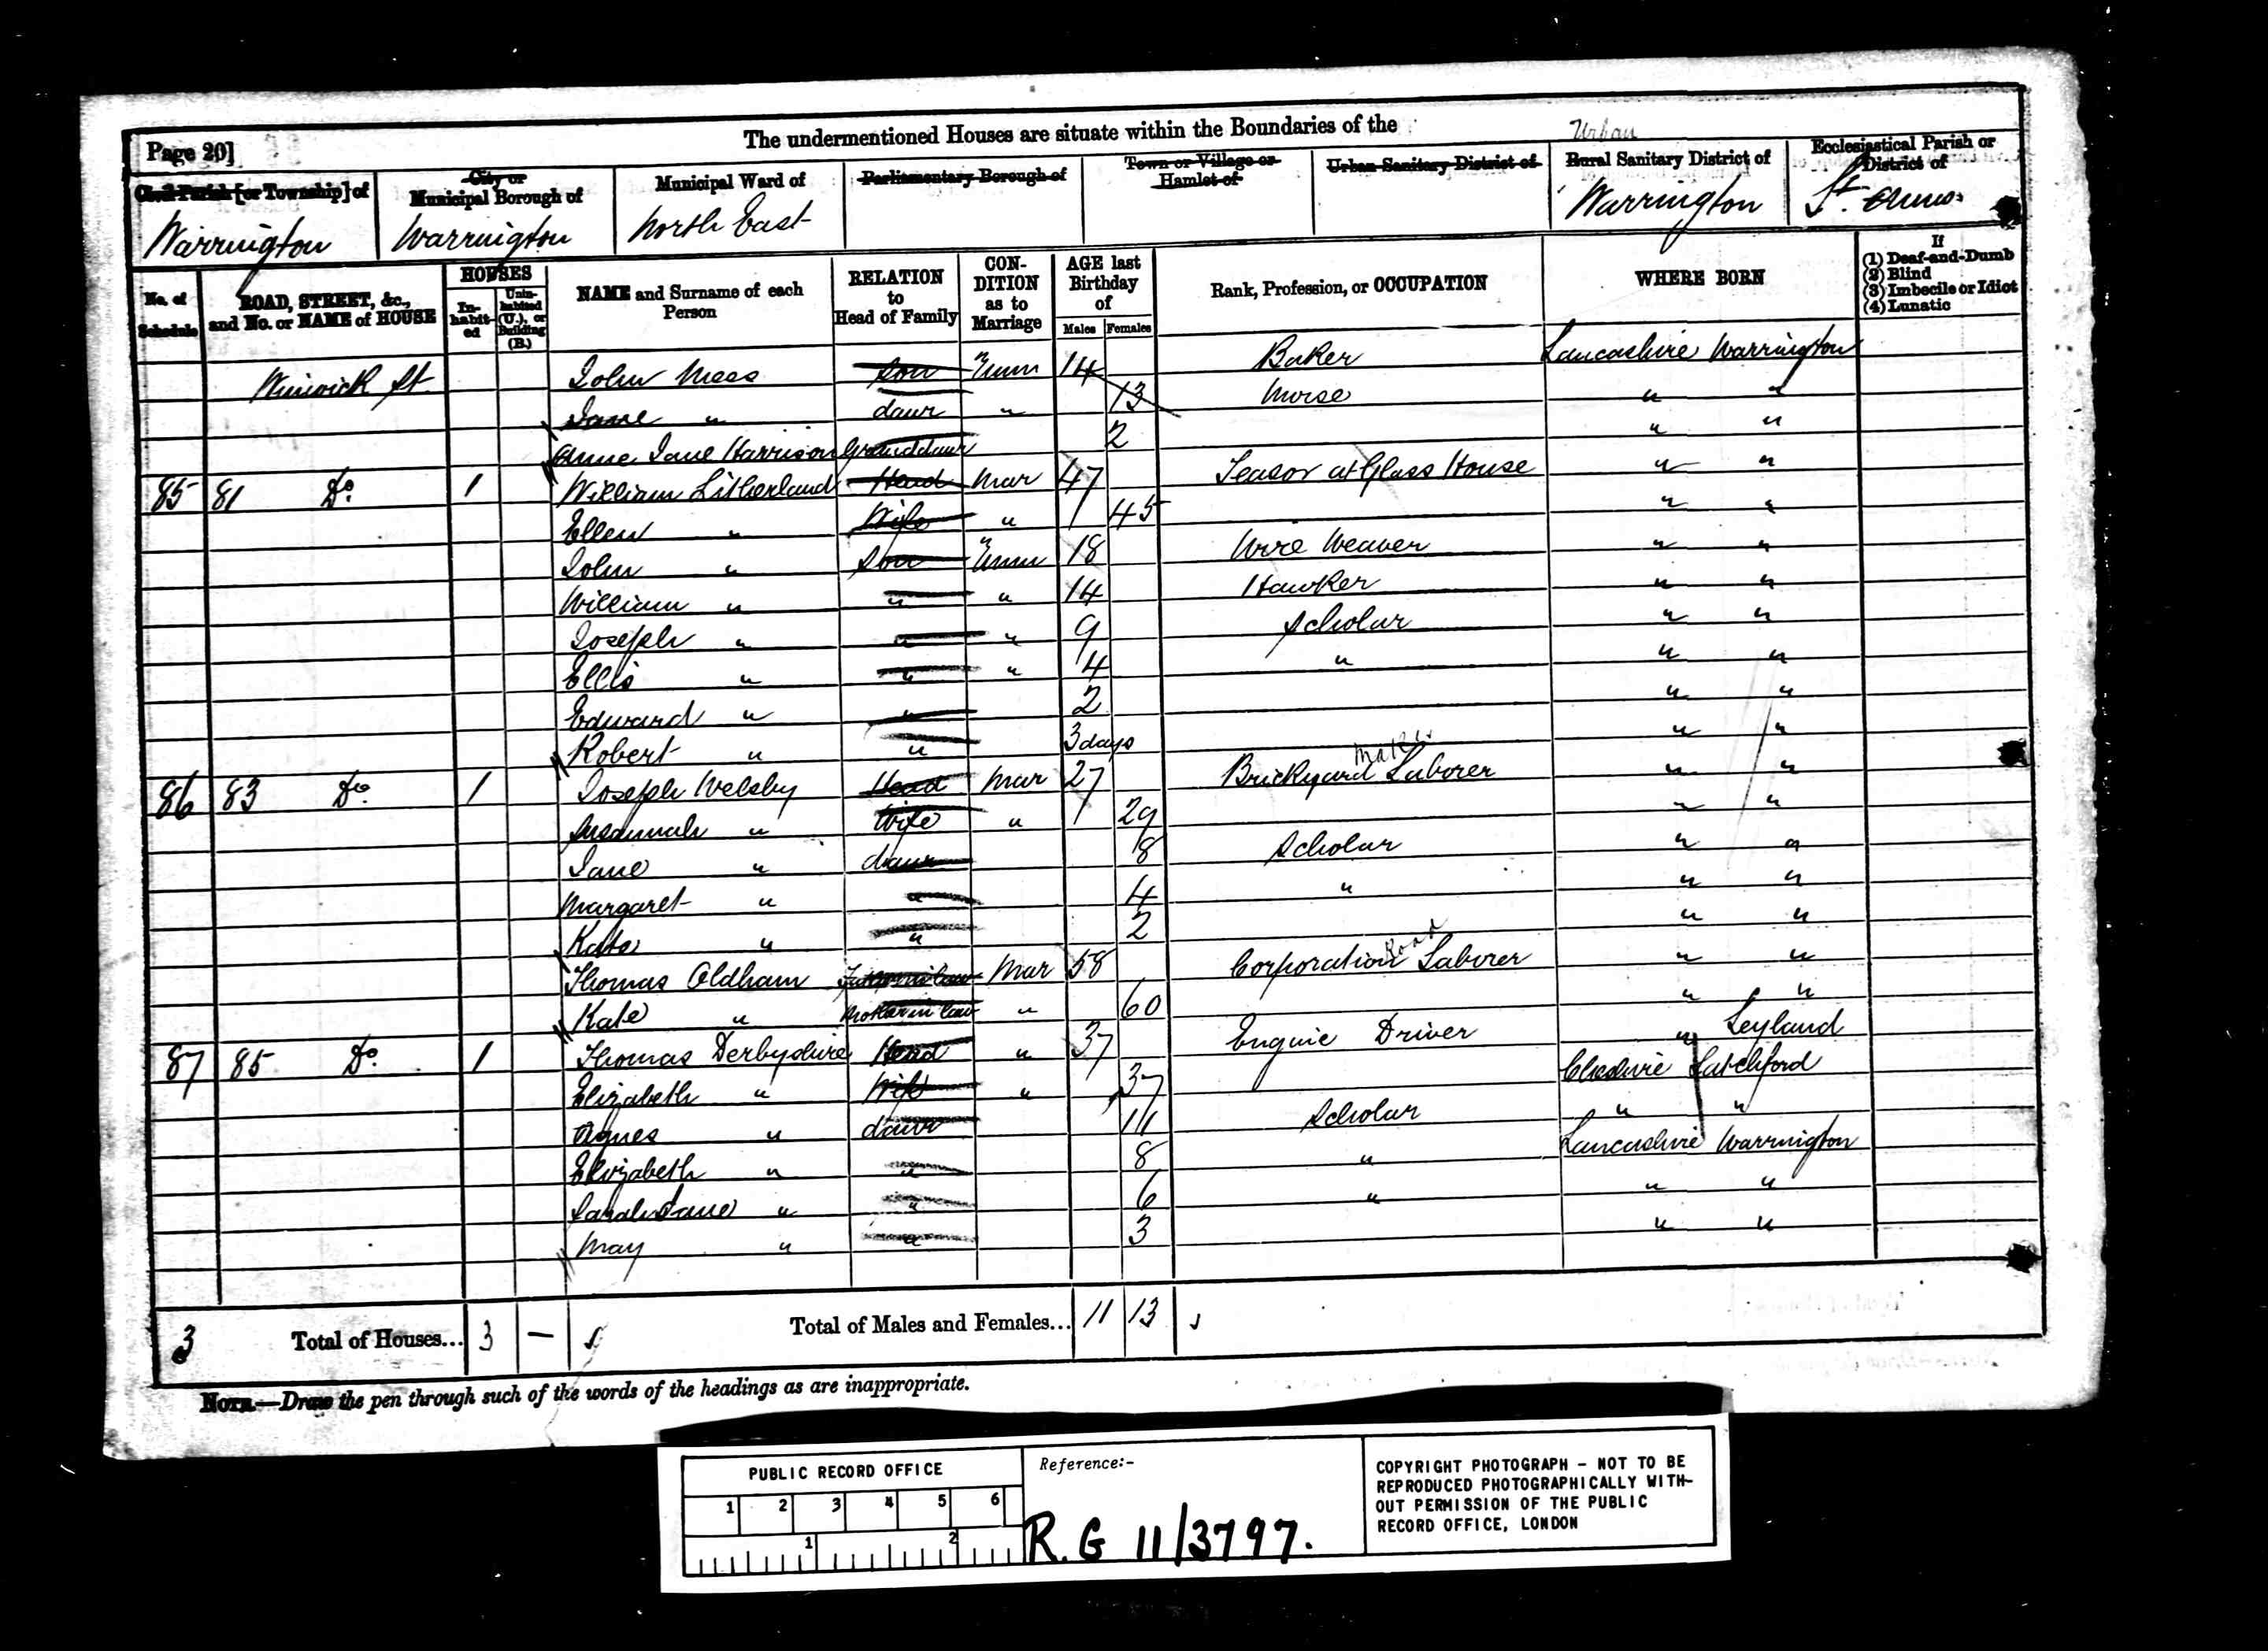 The undermentioned Houses are situate within the Boundaries of the
Page 20]
Civil Parish [or Township] of
Warrington
City or Municipal Borough of
Warrington
Municipal Ward of
North East
Parliamentary Borough of
Town or Village or Hamlet of
Urban Sanitary District of
Urban
Rural Sanitary District of
Warrington
Ecclesiastical Parish or District of
St. Anns
No. of Schedule
ROAD, STREET, &c., and No. or NAME of HOUSE
HOUSES
In-habit-ed
Unin-habited (U.), or Building (B.)
NAME and Surname of each Person
RELATION to Head of Family
CON-DITION as to Marriage
AGE last Birthday of
Males Females
Rank, Profession, or OCCUPATION
WHERE BORN
If
(1) Deaf-and-Dumb
(2) Blind
(3) Imbecile or Idiot
(4) Lunatic
Winwick St John Mees son Unm 14 Baker Lancashire Warrington
Jane " daur " 13 Nurse " "
Anne Jane Harrison Granddaur 2 " "
85 81 Do. 1 William Litherland Head Mar 47 Teasor at Glass House " "
Ellen " Wife " 45 " "
John " Son Unm 18 Wire Weaver " "
William " " " 14 Hawker " "
Joseph " " " 9 Scholar " "
Ellis " " " 4 " " "
Edward " " 2 " "
Robert " " 3 days " "
86 83 Do. 1 Joseph Welsby Head Mar 27 Brickyard Laborer " "
Susannah " Wife " 29 " "
Jane " daur 8 Scholar " "
Margaret " " 4 " " "
Kate " " 2 " "
Thomas Oldham Father in law Mar 58 Corporation Road Laborer " "
Kate " Mother in law " 60 " "
87 85 Do. 1 Thomas Derbyshire Head " 37 Engine Driver " Leyland
Elizabeth " Wife " 37 Cheshire Latchford
Agnes " daur 11 Scholar " "
Elizabeth " " 8 " Lancashire Warrington
Sarah Jane " " 6 " " "
May " " 3 " "
3 Total of Houses... 3 — Total of Males and Females... 11 13
NOTE.—Draw the pen through such of the words of the headings as are inappropriate.
PUBLIC RECORD OFFICE
1 2 3 4 5 6
1 2
Reference:-
R.G 11/3797.
COPYRIGHT PHOTOGRAPH – NOT TO BE
REPRODUCED PHOTOGRAPHICALLY WITH-
OUT PERMISSION OF THE PUBLIC
RECORD OFFICE, LONDON